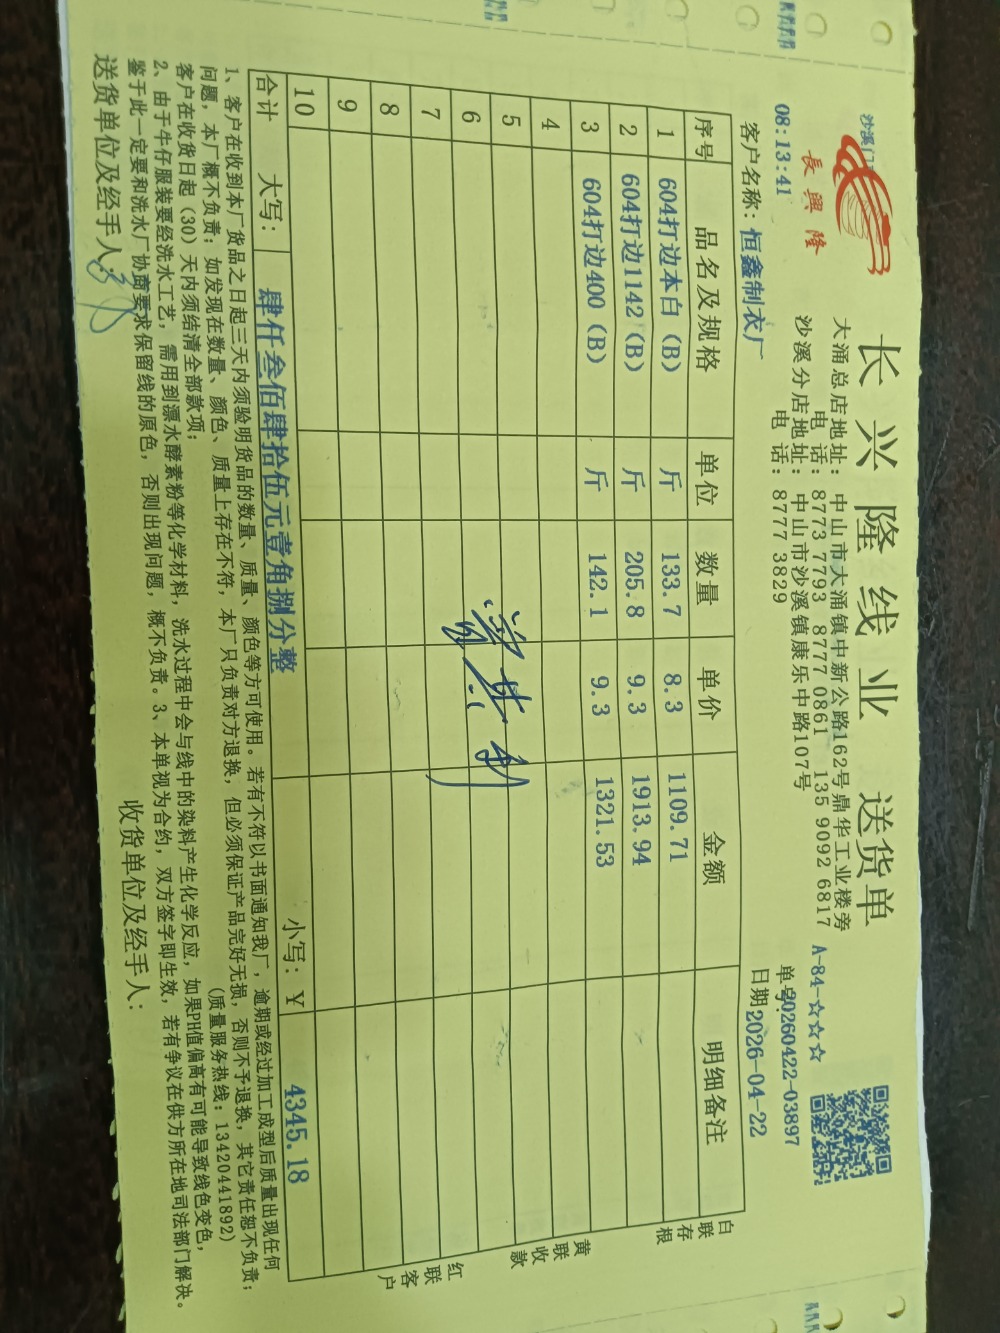 長興隆
长兴隆线业 送货单
大涌总店地址: 中山市大涌镇中新公路162号鼎华工业楼旁
电 话: 8773 7793 8777 0861 135 9092 6817
沙溪分店地址: 中山市沙溪镇康乐中路107号
电 话: 8777 3829
A-84-☆☆☆
08:13:41
单号20260422-03897
客户名称: 恒鑫制衣厂
日期2026-04-22
序号 品名及规格 单位 数量 单价 金额 明细备注
1 604打边本白(B) 斤 133.7 8.3 1109.71
2 604打边1142(B) 斤 205.8 9.3 1913.94
3 604打边400(B) 斤 142.1 9.3 1321.53
4
5
6
7
8
9
10
合计 大写: 肆仟叁佰肆拾伍元壹角捌分整 小写: ¥ 4345.18
白联存根
黄联收款
红联客户
1、客户在收到本厂货品之日起三天内须验明货品的数量、质量、颜色等方可使用。若有不符以书面通知我厂,逾期或经过加工成型后质量出现任何
问题,本厂概不负责;如发现在数量、颜色、质量上存在不符,本厂只负责对方退换,但必须保证产品完好无损,否则不予退换,其它责任恕不负责;
客户在收货日起(30)天内须结清全部款项; (质量服务热线: 13420441892)
2、由于牛仔服装要经洗水工艺,需用到漂水酵素粉等化学材料,洗水过程中会与线中的染料产生化学反应,如果PH值偏高有可能导致线色变色,
鉴于此一定要和洗水厂协商要求保留线的原色,否则出现问题,概不负责。3、本单视为合约,双方签字即生效,若有争议在供方所在地司法部门解决。
送货单位及经手人: 收货单位及经手人: